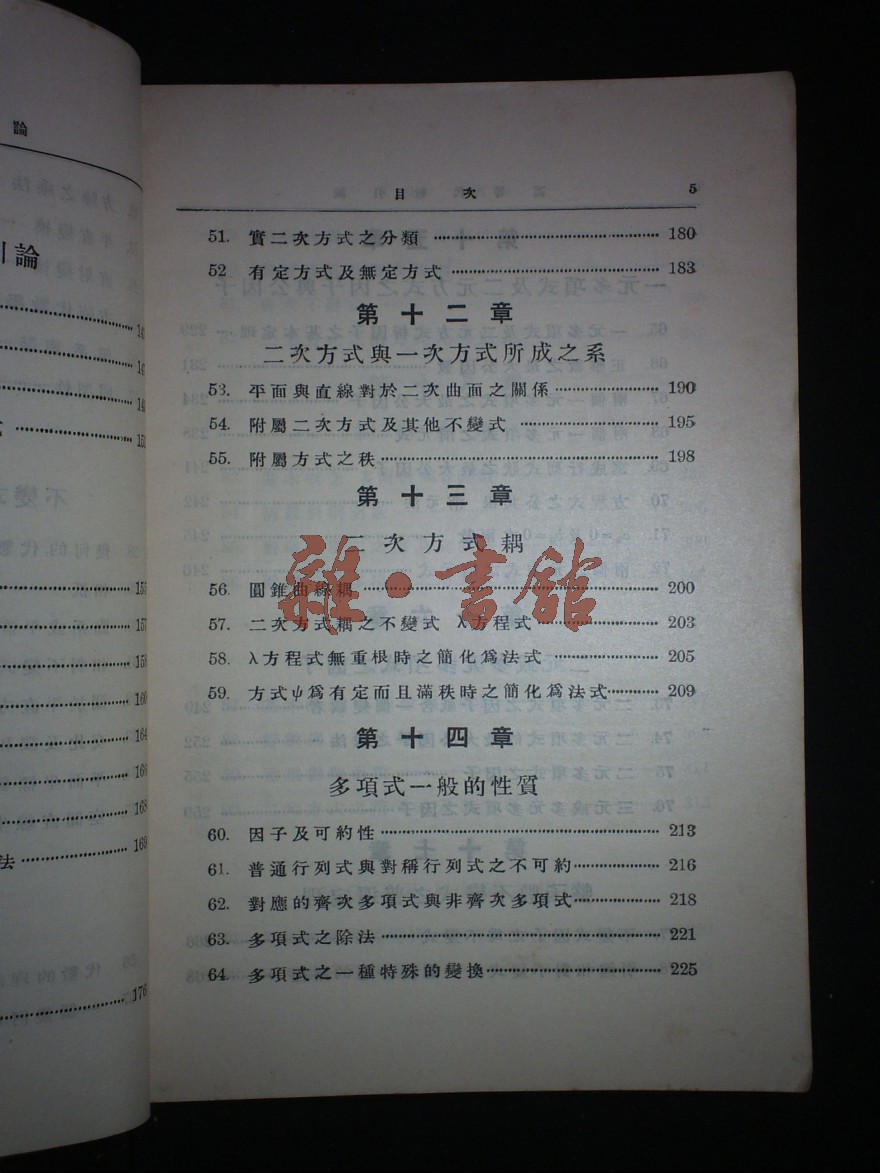 論
引論
176
目 次 5
51. 實二次方式之分類 180
52 有定方式及無定方式 183
第十二章
二次方式與一次方式所成之系
53. 平面與直線對於二次曲面之關係 190
54. 附屬二次方式及其他不變式 195
55. 附屬方式之秩 198
第十三章
二次方式耦
雜·書館
56. 圓錐曲線耦 200
57. 二次方式耦之不變式 λ方程式 203
58. λ方程式無重根時之簡化爲法式 205
59. 方式ψ爲有定而且滿秩時之簡化爲法式 209
第十四章
多項式一般的性質
60. 因子及可約性 213
61. 普通行列式與對稱行列式之不可約 216
62. 對應的齊次多項式與非齊次多項式 218
63. 多項式之除法 221
64. 多項式之一種特殊的變換 225